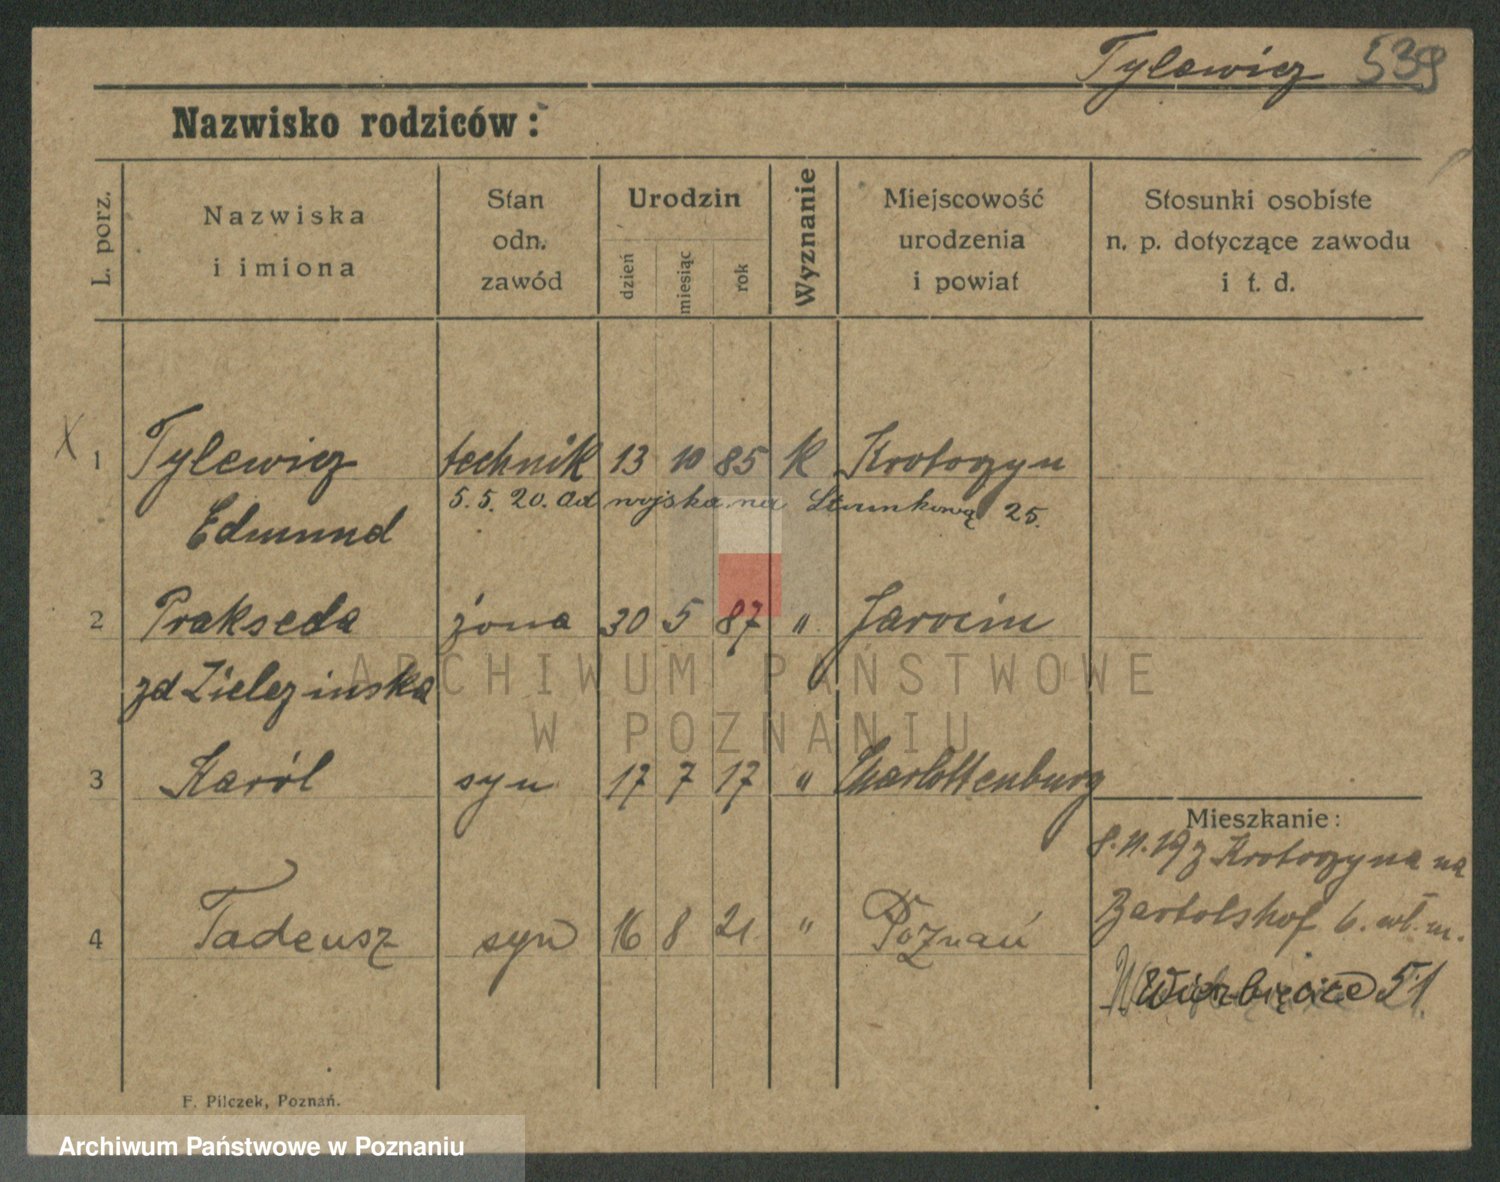 Tylewicz 539
Nazwisko rodziców:
L. porz.
Nazwiska
i imiona
Stan
odn.
zawód
Urodzin
dzień
miesiąc
rok
Wyznanie
Miejscowość
urodzenia
i powiat
Stosunki osobiste
n. p. dotyczące zawodu
i t. d.
X 1 Tylewicz technik 13 10 85 k Krotoszyn
5.5.20. od wojska na 25.
Edmund
2 Prakseda żona 30 5 87 " Jarocin
zd Zielezinska
ARCHIWUM PAŃSTWOWE
W POZNANIU
3 Karól syn 17 7 17 " Charlottenburg
Mieszkanie:
8.11.19 z Krotoszyna na
Bartolshof 6. wł. m.
4 Tadeusz syn 16 8 21. " Poznań
Wierbięcice 51.
F. Pilczek, Poznań.
Archiwum Państwowe w Poznaniu